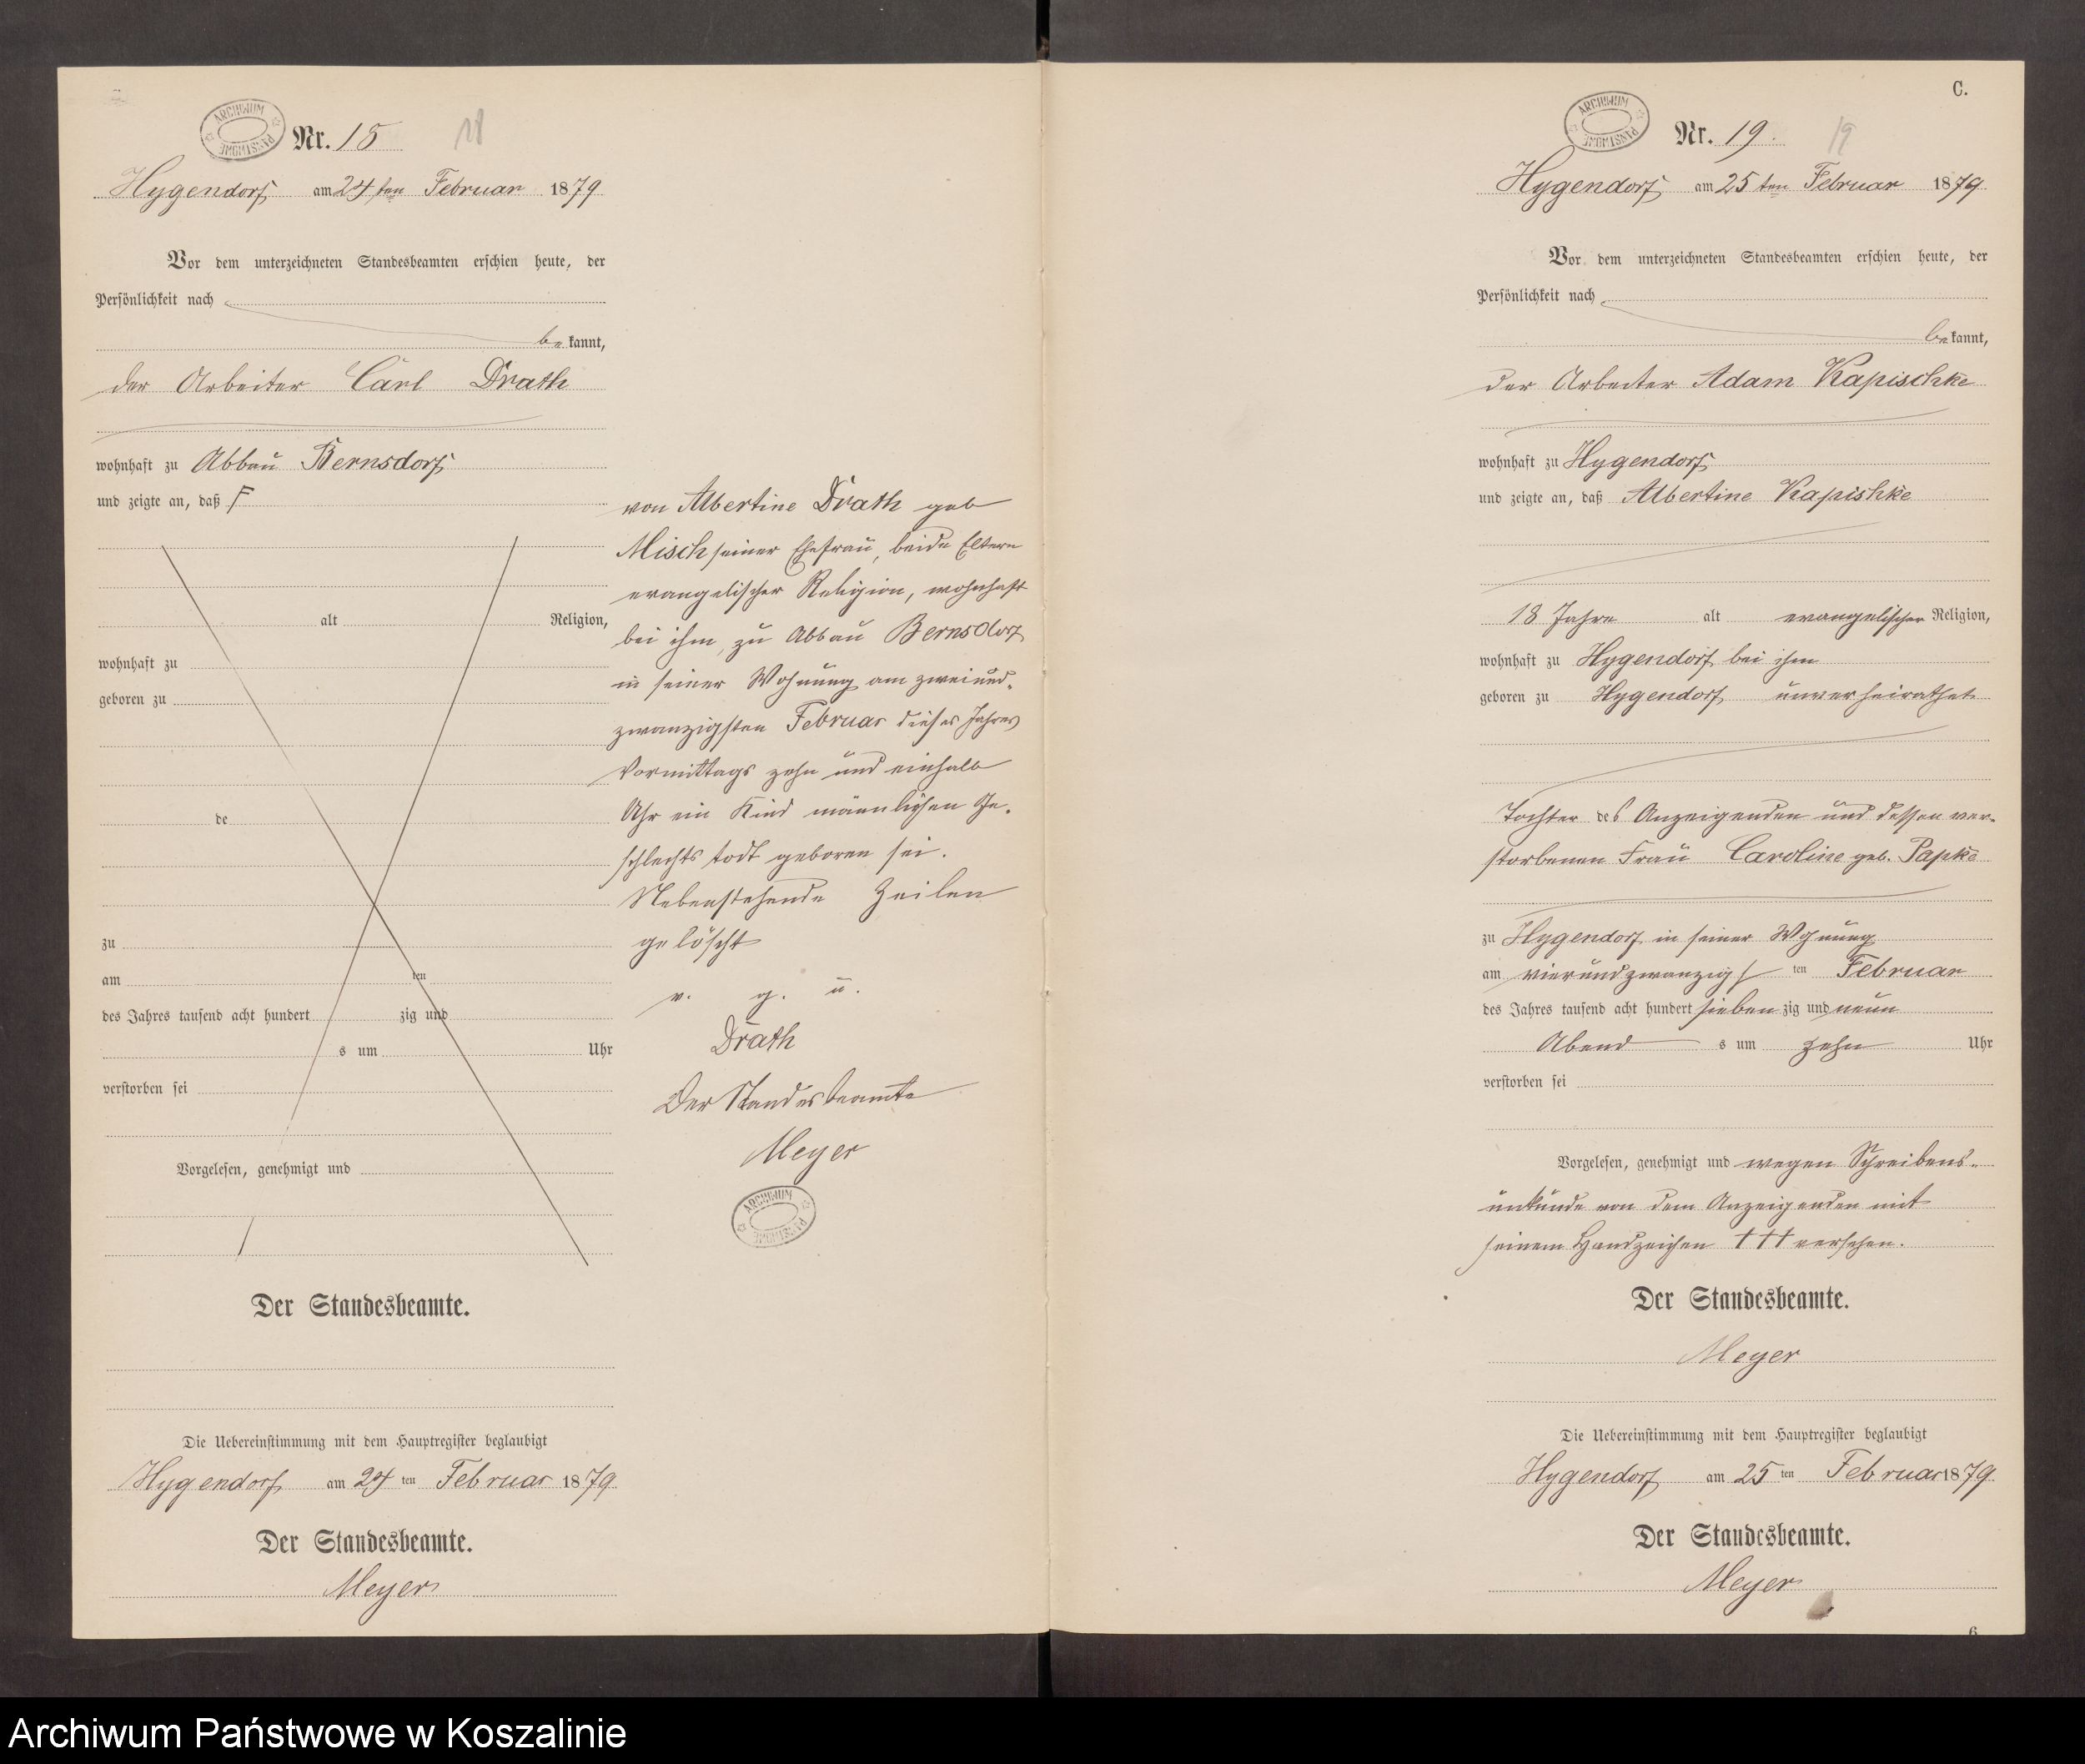 ARCHIWUM PAŃSTWOWE
Nr. 18
18
Hygendorf am 24 ten Februar 1879
Vor dem unterzeichneten Standesbeamten erschien heute, der
Persönlichkeit nach
be kannt,
der Arbeiter Carl Drath
wohnhaft zu Abbau Bernsdorf
und zeigte an, daß F
alt Religion,
wohnhaft zu
geboren zu
de
zu
am ten
des Jahres tausend acht hundert zig und
s um Uhr
verstorben sei
Vorgelesen, genehmigt und
Der Standesbeamte.
Die Uebereinstimmung mit dem Hauptregister beglaubigt
Hygendorf am 24 ten Februar 1879
Der Standesbeamte.
Meyer
von Albertine Drath geb
Misch seiner Ehefrau, beide Eltern
evangelischer Religion, wohnhaft
bei ihm, zu Abbau Bernsdorf
in seiner Wohnung am zweiund-
zwanzigsten Februar dieses Jahres
Vormittags zehn und einhalb
Uhr ein Kind männlichen Ge-
schlechts todt geboren sei.
Nebenstehende Zeilen
gelöscht
v. g. u.
Drath
Der Standesbeamte
Meyer
ARCHIWUM PAŃSTWOWE
C.
ARCHIWUM PAŃSTWOWE
Nr. 19.
19
Hygendorf am 25 ten Februar 1879
Vor dem unterzeichneten Standesbeamten erschien heute, der
Persönlichkeit nach
be kannt,
der Arbeiter Adam Kapischke
wohnhaft zu Hygendorf
und zeigte an, daß Albertine Kapishke
18 Jahre alt evangelischer Religion,
wohnhaft zu Hygendorf bei ihm
geboren zu Hygendorf unverheirathet
Tochter des Anzeigenden und dessen ver-
storbenen Frau Caroline geb. Papke
zu Hygendorf in seiner Wohnung
am vierundzwanzigs ten Februar
des Jahres tausend acht hundert sieben zig und neun
Abend s um zehn Uhr
verstorben sei
Vorgelesen, genehmigt und wegen Schreibens-
unkunde von dem Anzeigenden mit
seinem Handzeichen ††† versehen.
Der Standesbeamte.
Meyer
Die Uebereinstimmung mit dem Hauptregister beglaubigt
Hygendorf am 25 ten Februar 1879
Der Standesbeamte.
Meyer
6
Archiwum Państwowe w Koszalinie